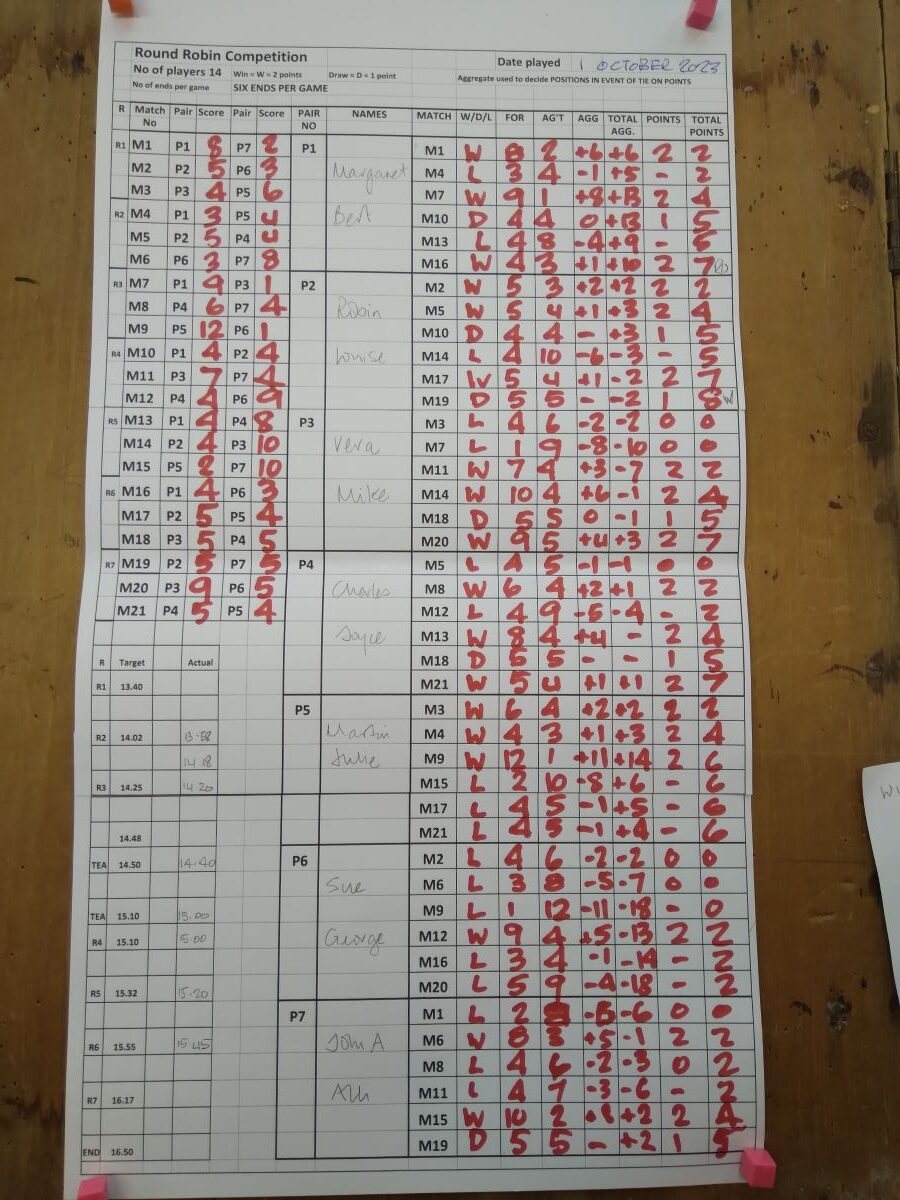 Round Robin Competition
Date played 1 OCTOBER 2023
No of players 14 Win = W = 2 points Draw = D = 1 point Aggregate used to decide POSITIONS IN EVENT OF TIE ON POINTS
No of ends per game SIX ENDS PER GAME
R Match No Pair Score Pair Score PAIR NO NAMES MATCH W/D/L FOR AG'T AGG TOTAL AGG. POINTS TOTAL POINTS
R1 M1 P1 8 P7 2
M2 P2 5 P6 3
M3 P3 4 P5 6
R2 M4 P1 3 P5 4
M5 P2 5 P4 4
M6 P6 3 P7 8
R3 M7 P1 9 P3 1
M8 P4 6 P7 4
M9 P5 12 P6 1
R4 M10 P1 4 P2 4
M11 P3 7 P7 4
M12 P4 4 P6 9
R5 M13 P1 4 P4 8
M14 P2 4 P3 10
M15 P5 2 P7 10
R6 M16 P1 4 P6 3
M17 P2 5 P5 4
M18 P3 5 P4 5
R7 M19 P2 5 P7 5
M20 P3 9 P6 5
M21 P4 5 P5 4
R Target Actual
R1 13.40
R2 14.02 13.58
14.18
R3 14.25 14.20
14.48
TEA 14.50 14.40
TEA 15.10 15.00
R4 15.10 5.00
R5 15.32 15.20
R6 15.55 15.45
R7 16.17
END 16.50
P1 Margaret Bert
M1 W 8 2 +6 +6 2 2
M4 L 3 4 -1 +5 - 2
M7 W 9 1 +8 +13 2 4
M10 D 4 4 0 +13 1 5
M13 L 4 8 -4 +9 - 5
M16 W 4 3 +1 +10 2 7
P2 Robin Louise
M2 W 5 3 +2 +2 2 2
M5 W 5 4 +1 +3 2 4
M10 D 4 4 - +3 1 5
M14 L 4 10 -6 -3 - 5
M17 W 5 4 +1 -2 2 7
M19 D 5 5 - -2 1 8 W
P3 Vera Mike
M3 L 4 6 -2 -2 0 0
M7 L 1 9 -8 -10 0 0
M11 W 7 4 +3 -7 2 2
M14 W 10 4 +6 -1 2 4
M18 D 5 5 0 -1 1 5
M20 W 9 5 +4 +3 2 7
P4 Charles Joyce
M5 L 4 5 -1 -1 0 0
M8 W 6 4 +2 +1 2 2
M12 L 4 9 -5 -4 - 2
M13 W 8 4 +4 - 2 4
M18 D 5 5 - - 1 5
M21 W 5 4 +1 +1 2 7
P5 Martin Julie
M3 W 6 4 +2 +2 2 2
M4 W 4 3 +1 +3 2 4
M9 W 12 1 +11 +14 2 6
M15 L 2 10 -8 +6 - 6
M17 L 4 5 -1 +5 - 6
M21 L 4 5 -1 +4 - 6
P6 Sue George
M2 L 4 6 -2 -2 0 0
M6 L 3 8 -5 -7 0 0
M9 L 1 12 -11 -18 - 0
M12 W 9 4 +5 -13 2 2
M16 L 3 4 -1 -14 - 2
M20 L 5 9 -4 -18 - 2
P7 John A
M1 L 2 8 -6 -6 0 0
M6 W 8 3 +5 -1 2 2
M8 L 4 6 -2 -3 0 2
M11 L 4 7 -3 -6 - 2
M15 W 10 2 +2 2 4
M19 D 5 5 - +2 1 5